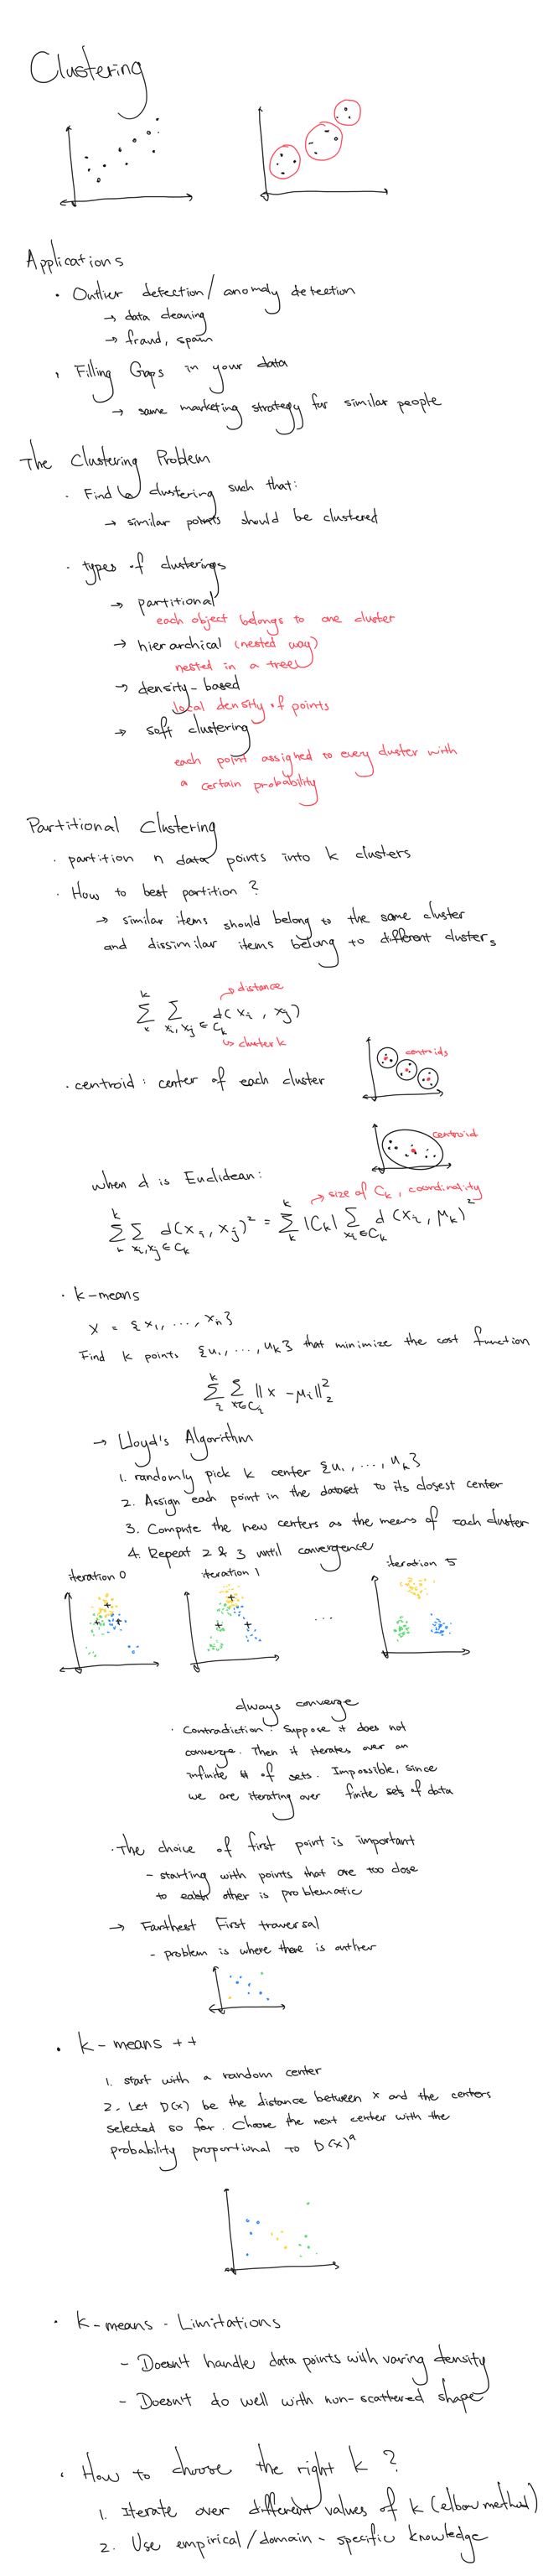 Clustering
Applications
· Outlier detection/ anomaly detection
→ data cleaning
→ fraud, spam
· Filling Gaps in your data
→ same marketing strategy for similar people
The Clustering Problem
· Find a clustering such that:
→ similar points should be clustered
· types of clusterings
→ partitional
each object belongs to one cluster
→ hierarchical (nested way)
nested in a tree
→ density-based
local density of points
→ soft clustering
each point assigned to every cluster with
a certain probability
Partitional Clustering
· partition n data points into k clusters
· How to best partition ?
→ similar items should belong to the same cluster
and dissimilar items belong to different clusters
→ distance
k
Σ Σ d(xi , xj)
xi, xj ∈ Ck
↳ cluster k
· centroid : center of each cluster
centroids
centroid
when d is Euclidean :
→ size of Ck , coordinality
k Σ k Σ xi,xj ∈ Ck d(xi , xj)² = k Σ k |Ck| Σ xi ∈ Ck d (xi , μk)²
· k-means
X = {x1, ..., xn}
Find k points {u1, ..., uk} that minimize the cost function
k Σ i Σ x∈Ci || x - μi ||²₂
→ Lloyd's Algorithm
1. randomly pick k center {u1, ..., uk}
2. Assign each point in the dataset to its closest center
3. Compute the new centers as the means of each cluster
4. Repeat 2 & 3 until convergence
iteration 0 iteration 1 ... iteration 5
always converge
· Contradiction : Suppose it does not
converge. Then it iterates over an
infinite # of sets. Impossible, since
we are iterating over finite sets of data
· The choice of first point is important
- starting with points that are too close
to each other is problematic
→ Farthest First traversal
- problem is where there is outlier
· k-means ++
1. start with a random center
2. Let D(x) be the distance between x and the centers
selected so far. Choose the next center with the
probability proportional to D(x)ᵃ
· k-means - Limitations
- Doesn't handle data points with varing density
- Doesn't do well with non-scattered shape
· How to choose the right k ?
1. Iterate over different values of k (elbow method)
2. Use empirical/domain-specific knowledge